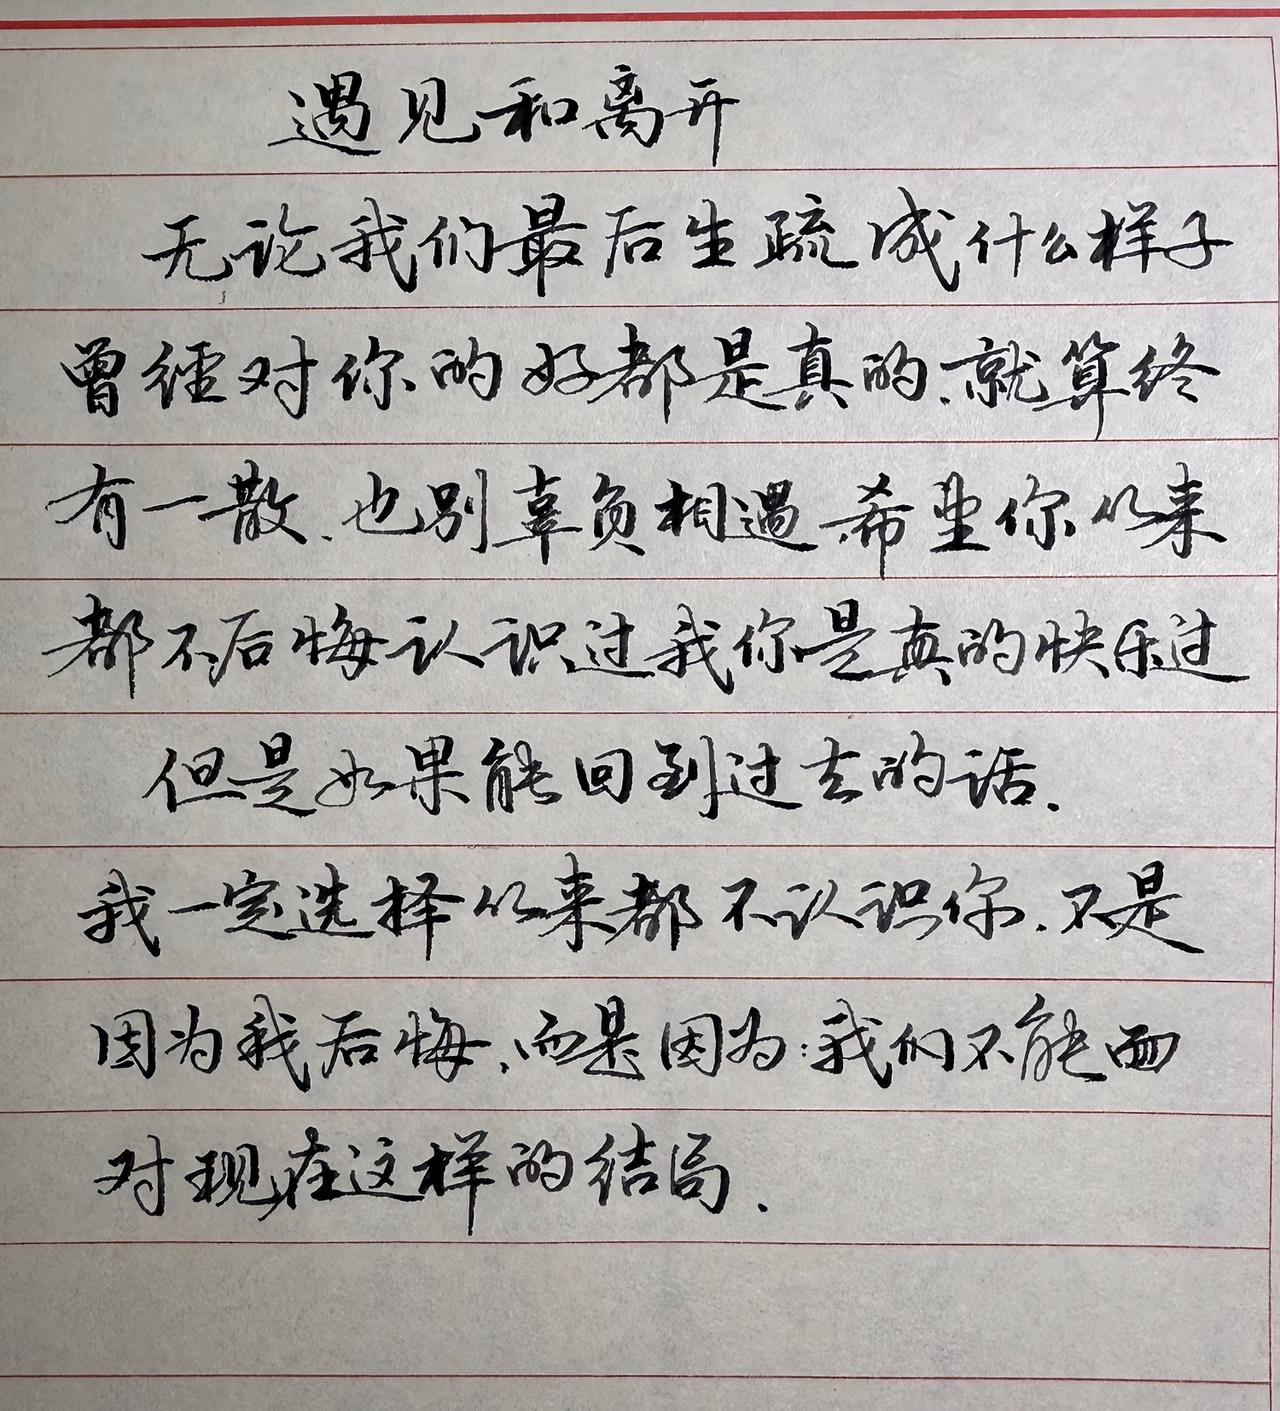 遇见和离开
无论我们最后生疏成什么样子
曾经对你的好都是真的.就算终
有一散.也别辜负相遇.希望你从来
都不后悔认识过我你是真的快乐过
但是如果能回到过去的话.
我一定选择从来都不认识你.不是
因为我后悔.而是因为:我们不能面
对现在这样的结局.